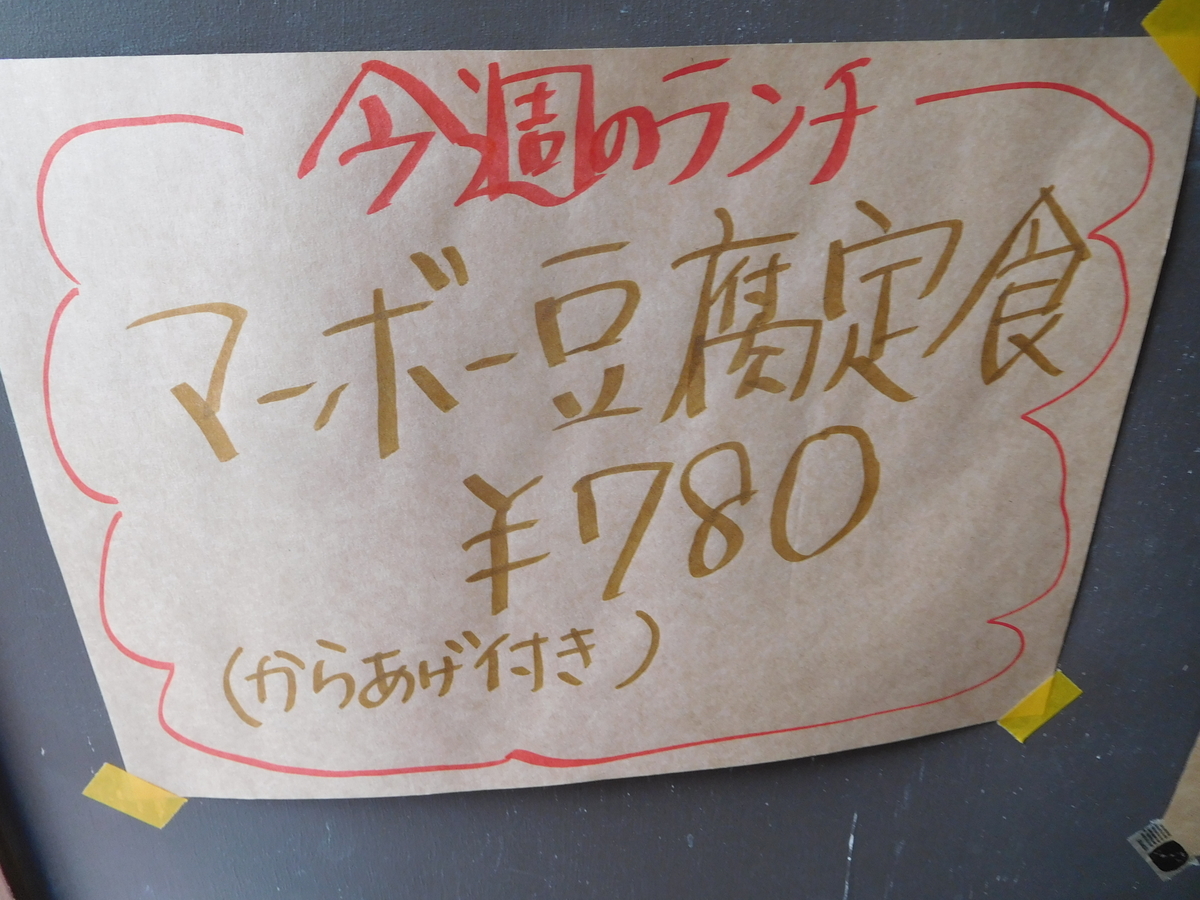 今週のランチ
マーボー豆腐定食
¥780
(からあげ付き)